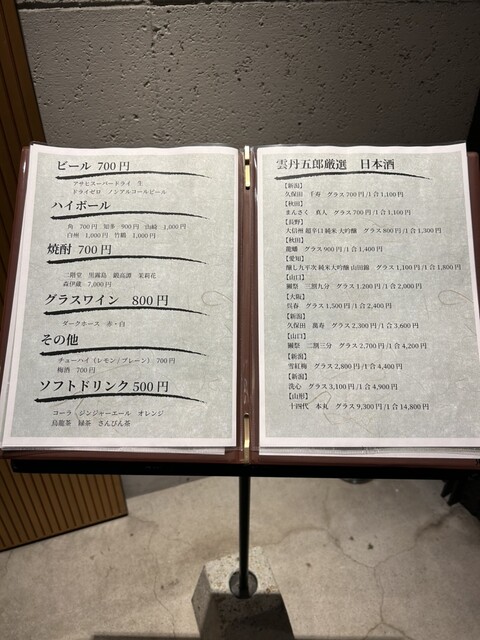 ビール 700円
アサヒスーパードライ 生
ドライゼロ ノンアルコールビール
ハイボール
角 700円 知多 900円 山崎 1,000円
白州 1,000円 竹鶴 1,000円
焼酎 700円
二階堂 黒霧島 鍛高譚 茉莉花
森伊蔵 7,000円
グラスワイン 800円
ダークホース 赤・白
その他
チューハイ（レモン/プレーン）700円
梅酒 700円
ソフトドリンク 500円
コーラ ジンジャーエール オレンジ
烏龍茶 緑茶 さんぴん茶
雲丹五郎厳選 日本酒
【新潟】
久保田 千寿 グラス700円/1合1,100円
【秋田】
まんさく 真人 グラス700円/1合1,100円
【長野】
大信州 超辛口 純米 大吟醸 グラス800円/1合1,300円
【秋田】
龍蟠 グラス900円/1合1,400円
【愛知】
醸し九平次 純米大吟醸 山田錦 グラス1,100円/1合1,800円
【山口】
獺祭 三割九分 グラス1,200円/1合2,000円
【大阪】
呉春 グラス1,500円/1合2,400円
【新潟】
久保田 萬寿 グラス2,300円/1合3,600円
【山口】
獺祭 二割三分 グラス2,700円/1合4,200円
【新潟】
雪紅梅 グラス2,800円/1合4,400円
【新潟】
洗心 グラス3,100円/1合4,900円
【山形】
十四代 本丸 グラス9,300円/1合14,800円